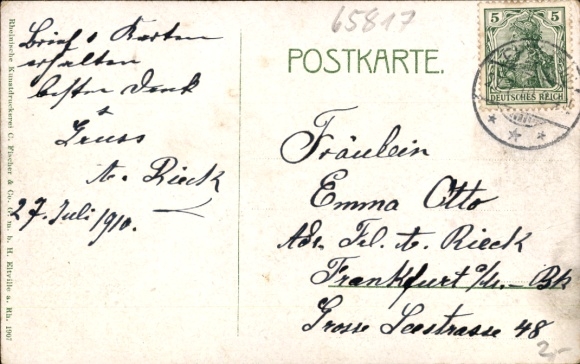 Rheinische Kunstdruckerei C. Fischer & Co. G. m. b. H. Eltville a. Rh. 1907
Brief & Karten
erhalten
besten Dank
&
Gruss
A. Rieck
27. Juli 1910.
65817
POSTKARTE.
5 5
DEUTSCHES REICH
Fräulein
Emma Otto
Adr. Frl. A. Rieck
Frankfurt a/M.-Bk
Grosse Seestrasse 48
2,-